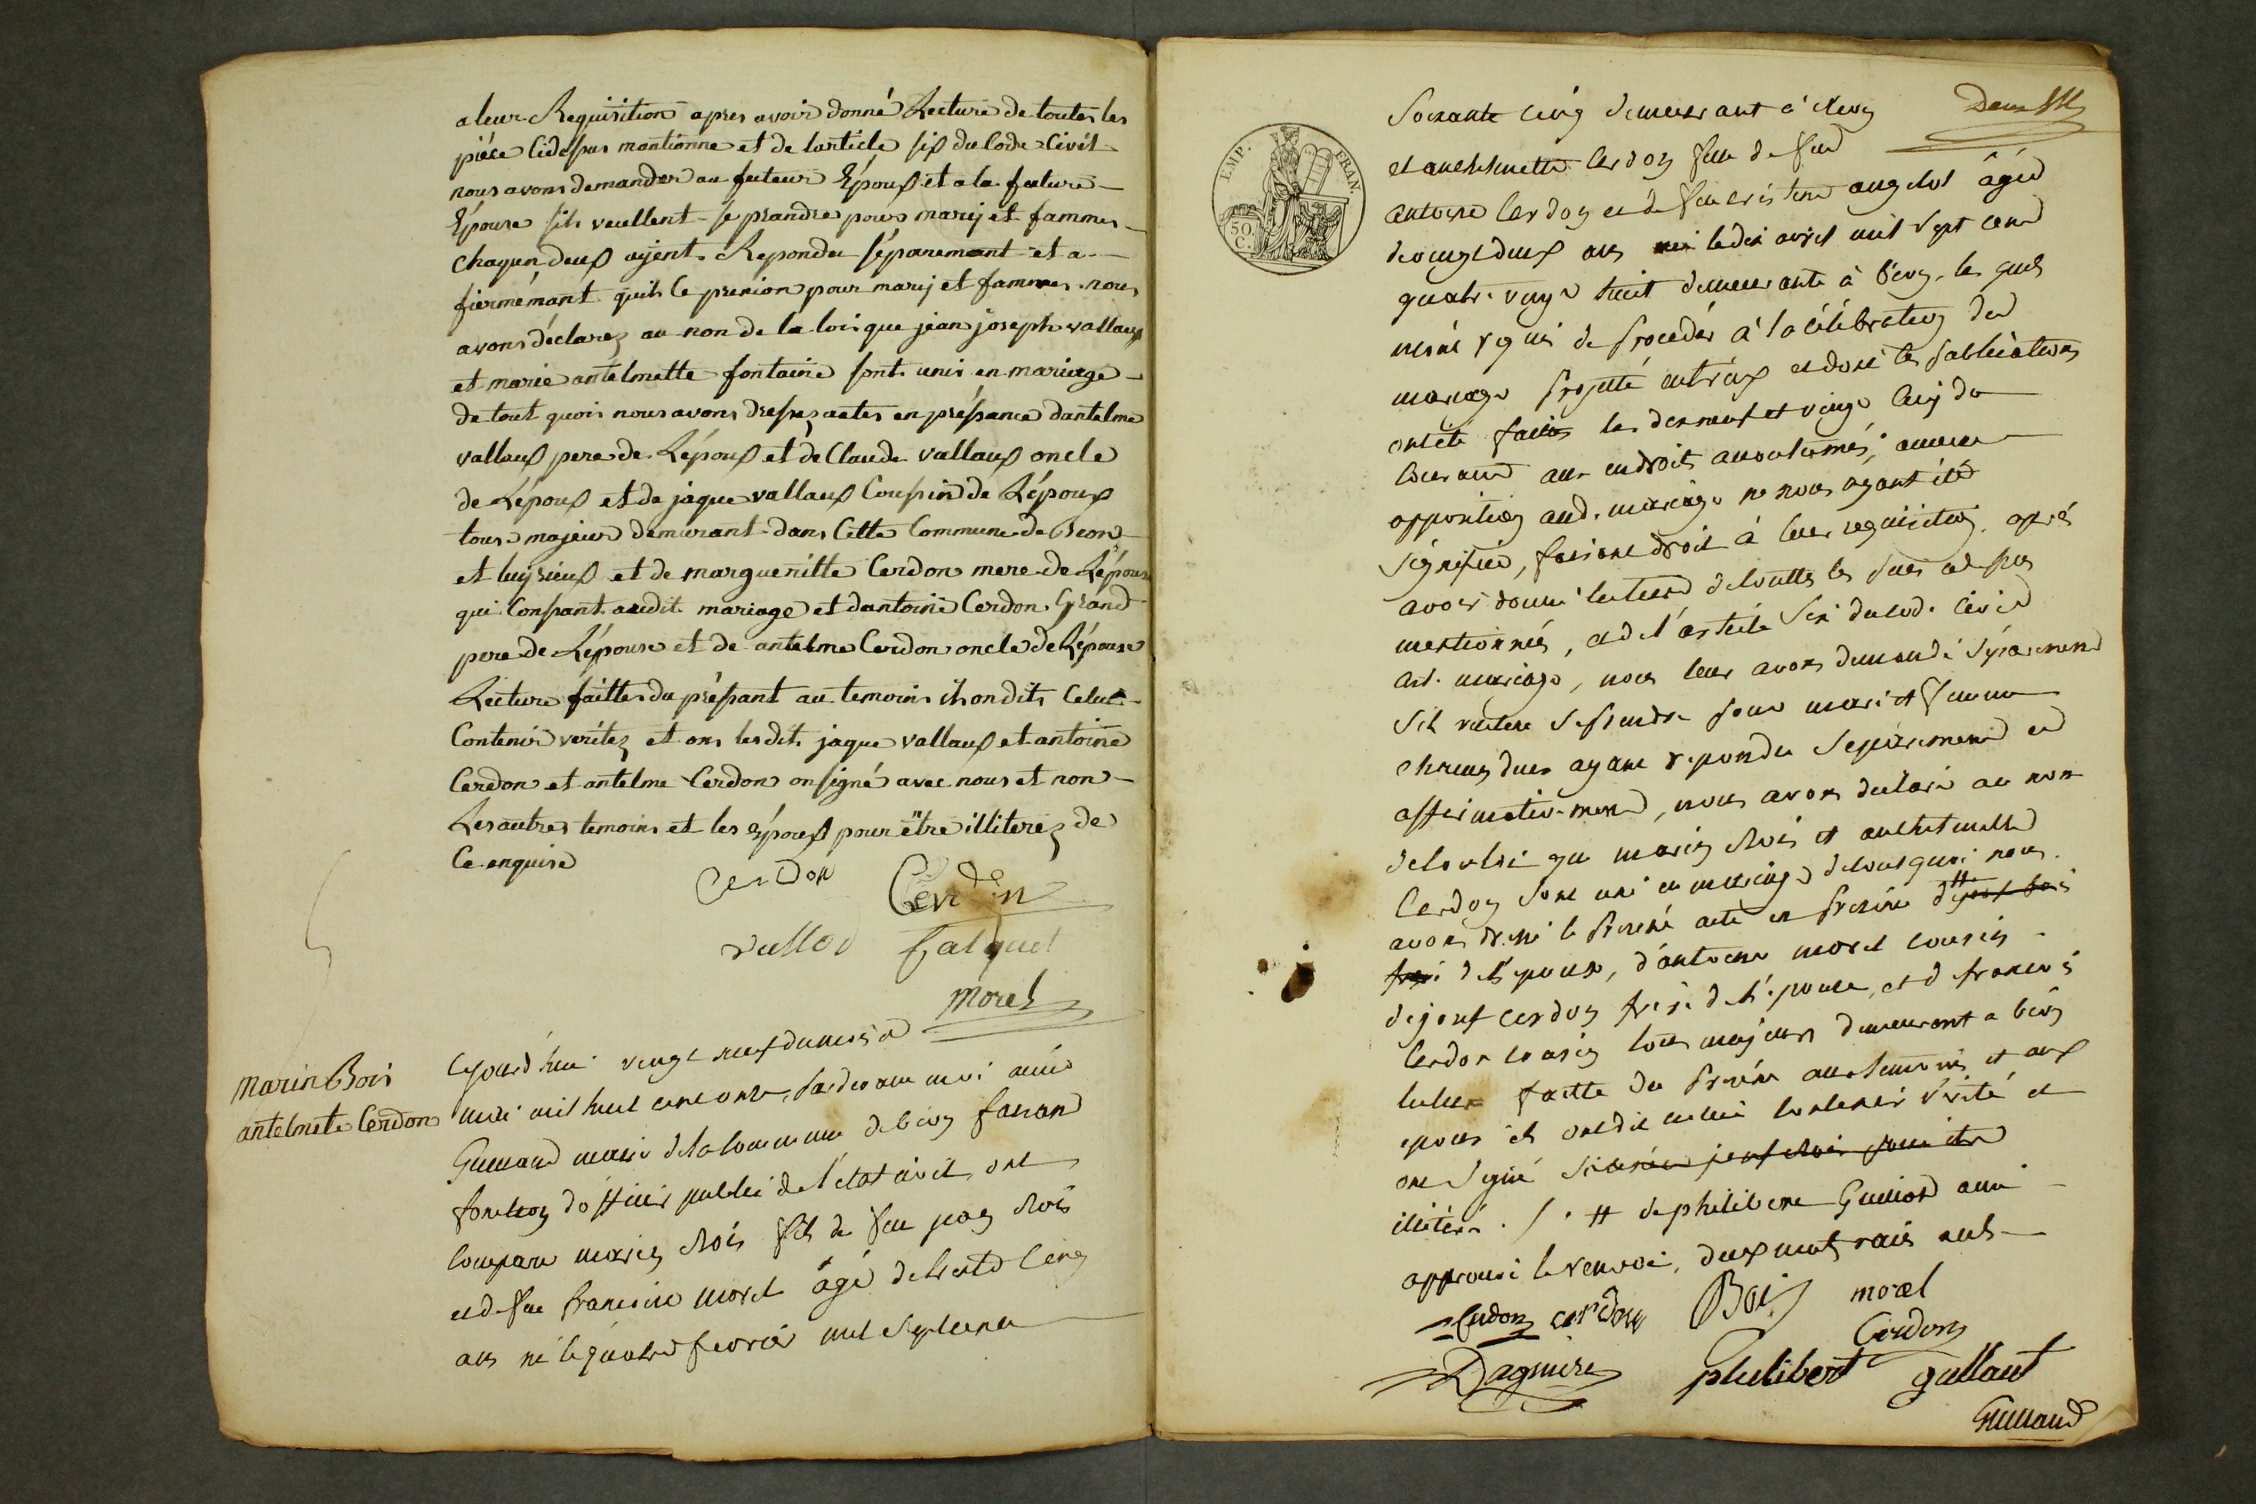 a leur Requisition apres avoir donné Lecture de toutes les
piéce Cidespus mantionne et de larticle six du Code Civil
nous avons demander au futeur Époux et a la future
Épouse sils veullent se prandre pour marij et fammes
chaqun deux ayent Repondu séparemant et a
fiermémant quils ce prenion pour marij et fammes nous
avons déclarez au non de la loi que jean joseph vallaux
et marie antelmette fontaine sont unis en mariage
de tout quoi nous avons dressez actes en préssance dantelme
vallaux pere de Lépoux et de Claude vallaux oncle
de Lépoux et de jaque vallaux Coussin de Lépoux
tous majeur demurant dans Cette Commune de Beon
et luyrieux et de margueritte Cerdon mere de Lépouse
qui Consant audit mariage et dantoine Cerdon Grand
pere de Lépouse et de antelme Cerdon oncle de Lépouse
Lecture faittes du préssant au temoins ils on dits Celui
Contenir veritez et ons lesdit jaque vallaux et antoine
Cerdon et antelme Cerdon on signé avec nous et non
Les autres temoins et les Époux pour être illiterez de
Ce enquise
Cerdon Cerdon
vallod falquet
Morel
Marin Bois
antelmete Cerdon
Cejourd'hui vingt neuf du mois de
mai mil huit cent onze, pardevant moi aimé
Guillaud maire de la commune de béon faisant
fonction d'officier public de l'état civil, ont
comparu marin Bois fils de feu jean Bois
et de feue francoise morel âgé de trente cinq
ans né le quatre fevrier mil sept cent
Deux
EMP. FRAN.
50 C.
soixante cinq demeurant à
et anthelmette Cerdon fille de feu
antoine Cerdon et de feue cristine angelot âgée
de vingt deux ans née le dix avril mil sept cent
quatre vingt huit demeurante à béon, les quels
mont requis de proceder à la célébration du
mariage projetté entr'eux et dont les publications
ont été faites les dix neuf et vingt cinq du
courant aux endroits accoutumés, aucune
opposition aud. mariage ne nous ayant été
signifiée, faisant droit à leur requisition, aprés
avoir donné lecture de touttes les piéces ci dessus
mentionnés, et de l'article six du code civil
art. mariage, nous leur avons demandé séparement
s'il veulent se prendre pour mari et femme
chacun deux ayant repondu séparement et
affirmativement, nous avons declaré au nom
de la loi que marin Bois et anthelmette
Cerdon sont uni en mariage de tout quoi nous
avons dressé le present acte en presence # de josef bois
frere de l'époux, d'antoine morel cousin
de josef cerdon frere de l'épouse, et de francois
Cerdon cousin tous majeurs demeurant a béon
lecture faitte du present aux temoins et aux
epoux ils ont dit celui contenir vérité et
ont signé josef Bois pour etre
illiteré. / . # de philibert Guillod ami
approuvé le renvoi, deux mots raiés nuls
Cerdon cerdon Bois morel
Cerdon
Dagnire philibert gullaut
Guillaud